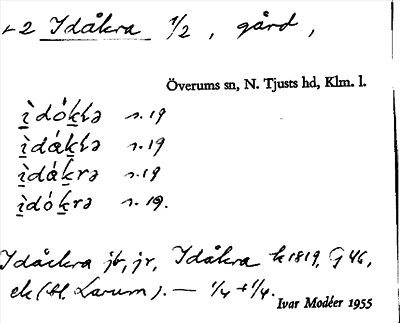 +2 Idåkra 1/2, gård,
Överums sn, N. Tjusts hd, Klm. l.
ìdókla s. 19
ìdákla s. 19
ìdákrə s. 19
ìdókrə s. 19.
Idåckra jb, jr, Idåkra k 1819, G 46,
ek (H. Larum). — 1/4 + 1/4.
Ivar Modéer 1955